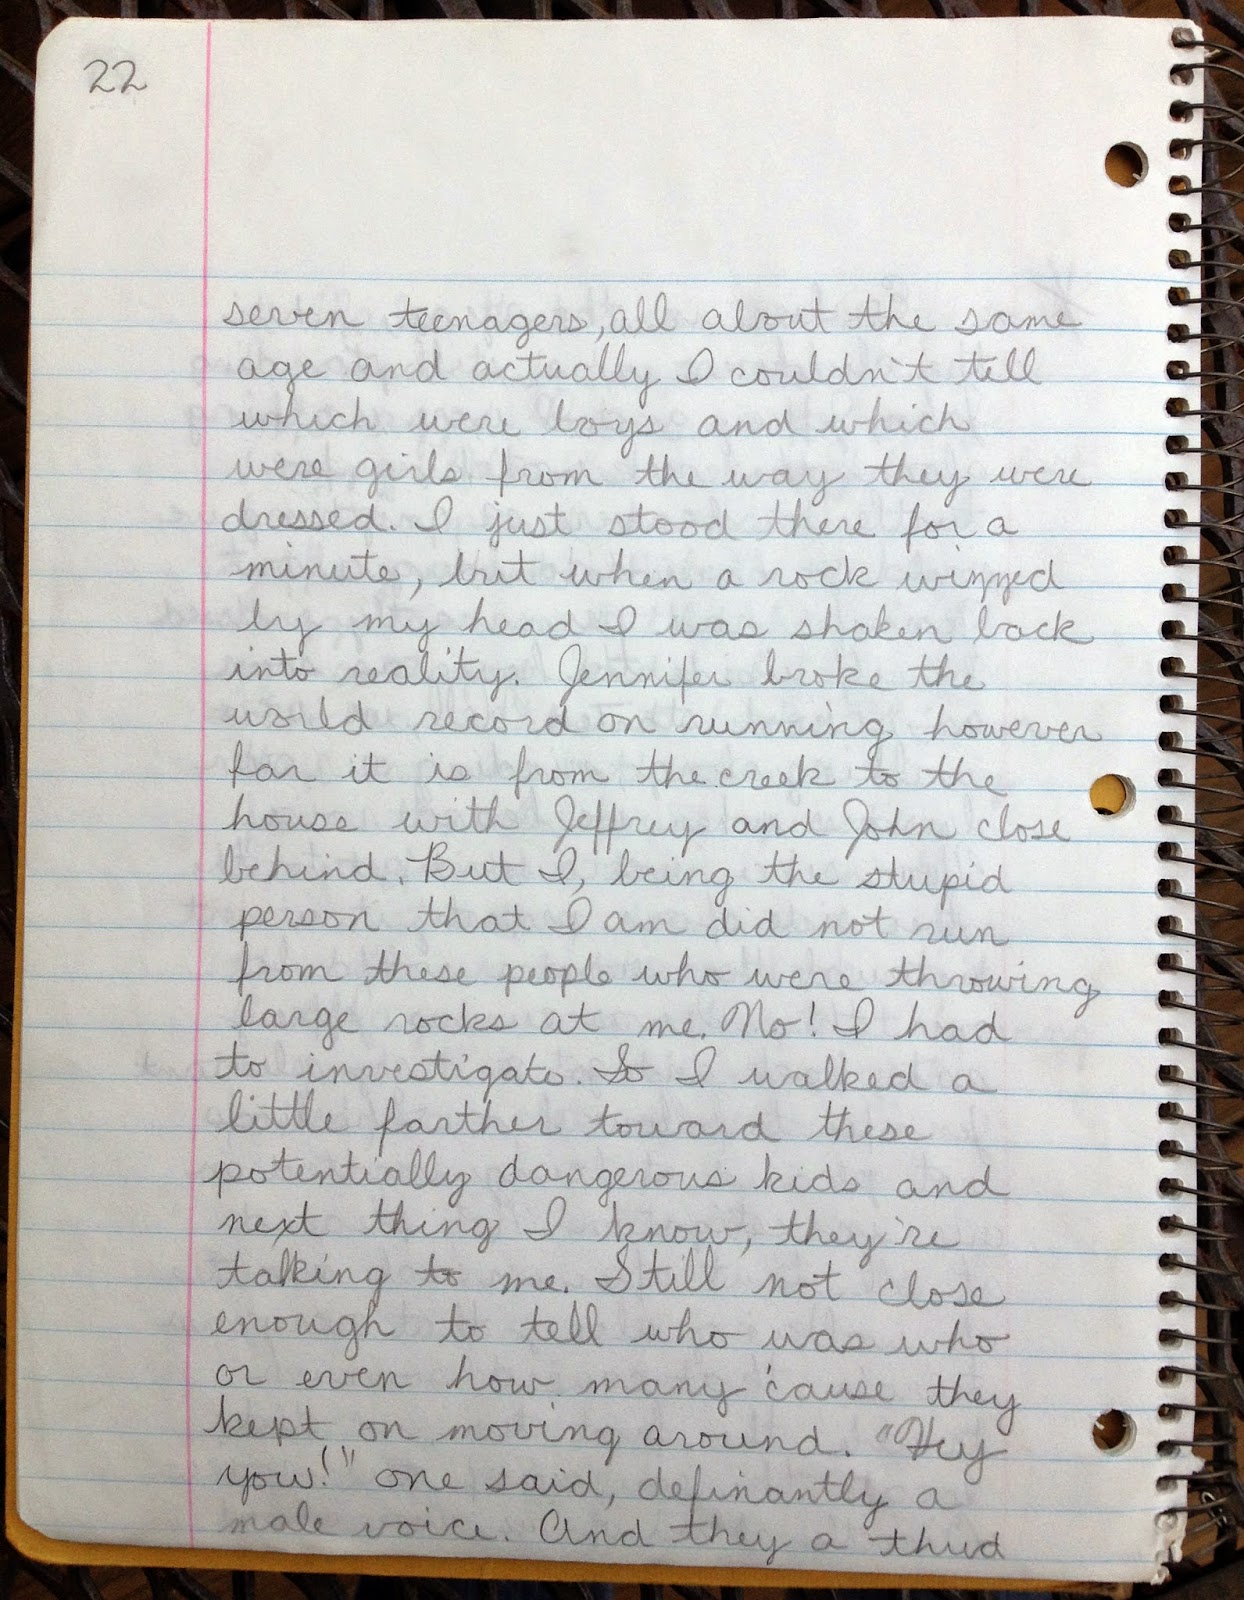 22
seven teenagers, all about the same
age and actually I couldn't tell
which were boys and which
were girls from the way they were
dressed. I just stood there for a
minute, but when a rock wizzed
by my head I was shaken back
into reality. Jennifer broke the
world record on running however
far it is from the creek to the
house with Jeffrey and John close
behind. But I, being the stupid
person that I am did not run
from these people who were throwing
large rocks at me. No! I had
to investigate. So I walked a
little farther toward these
potentially dangerous kids and
next thing I know, they're
talking to me. Still not close
enough to tell who was who
or even how many 'cause they
kept on moving around. "Hey
you!" one said, definantly a
male voice. And they a thud